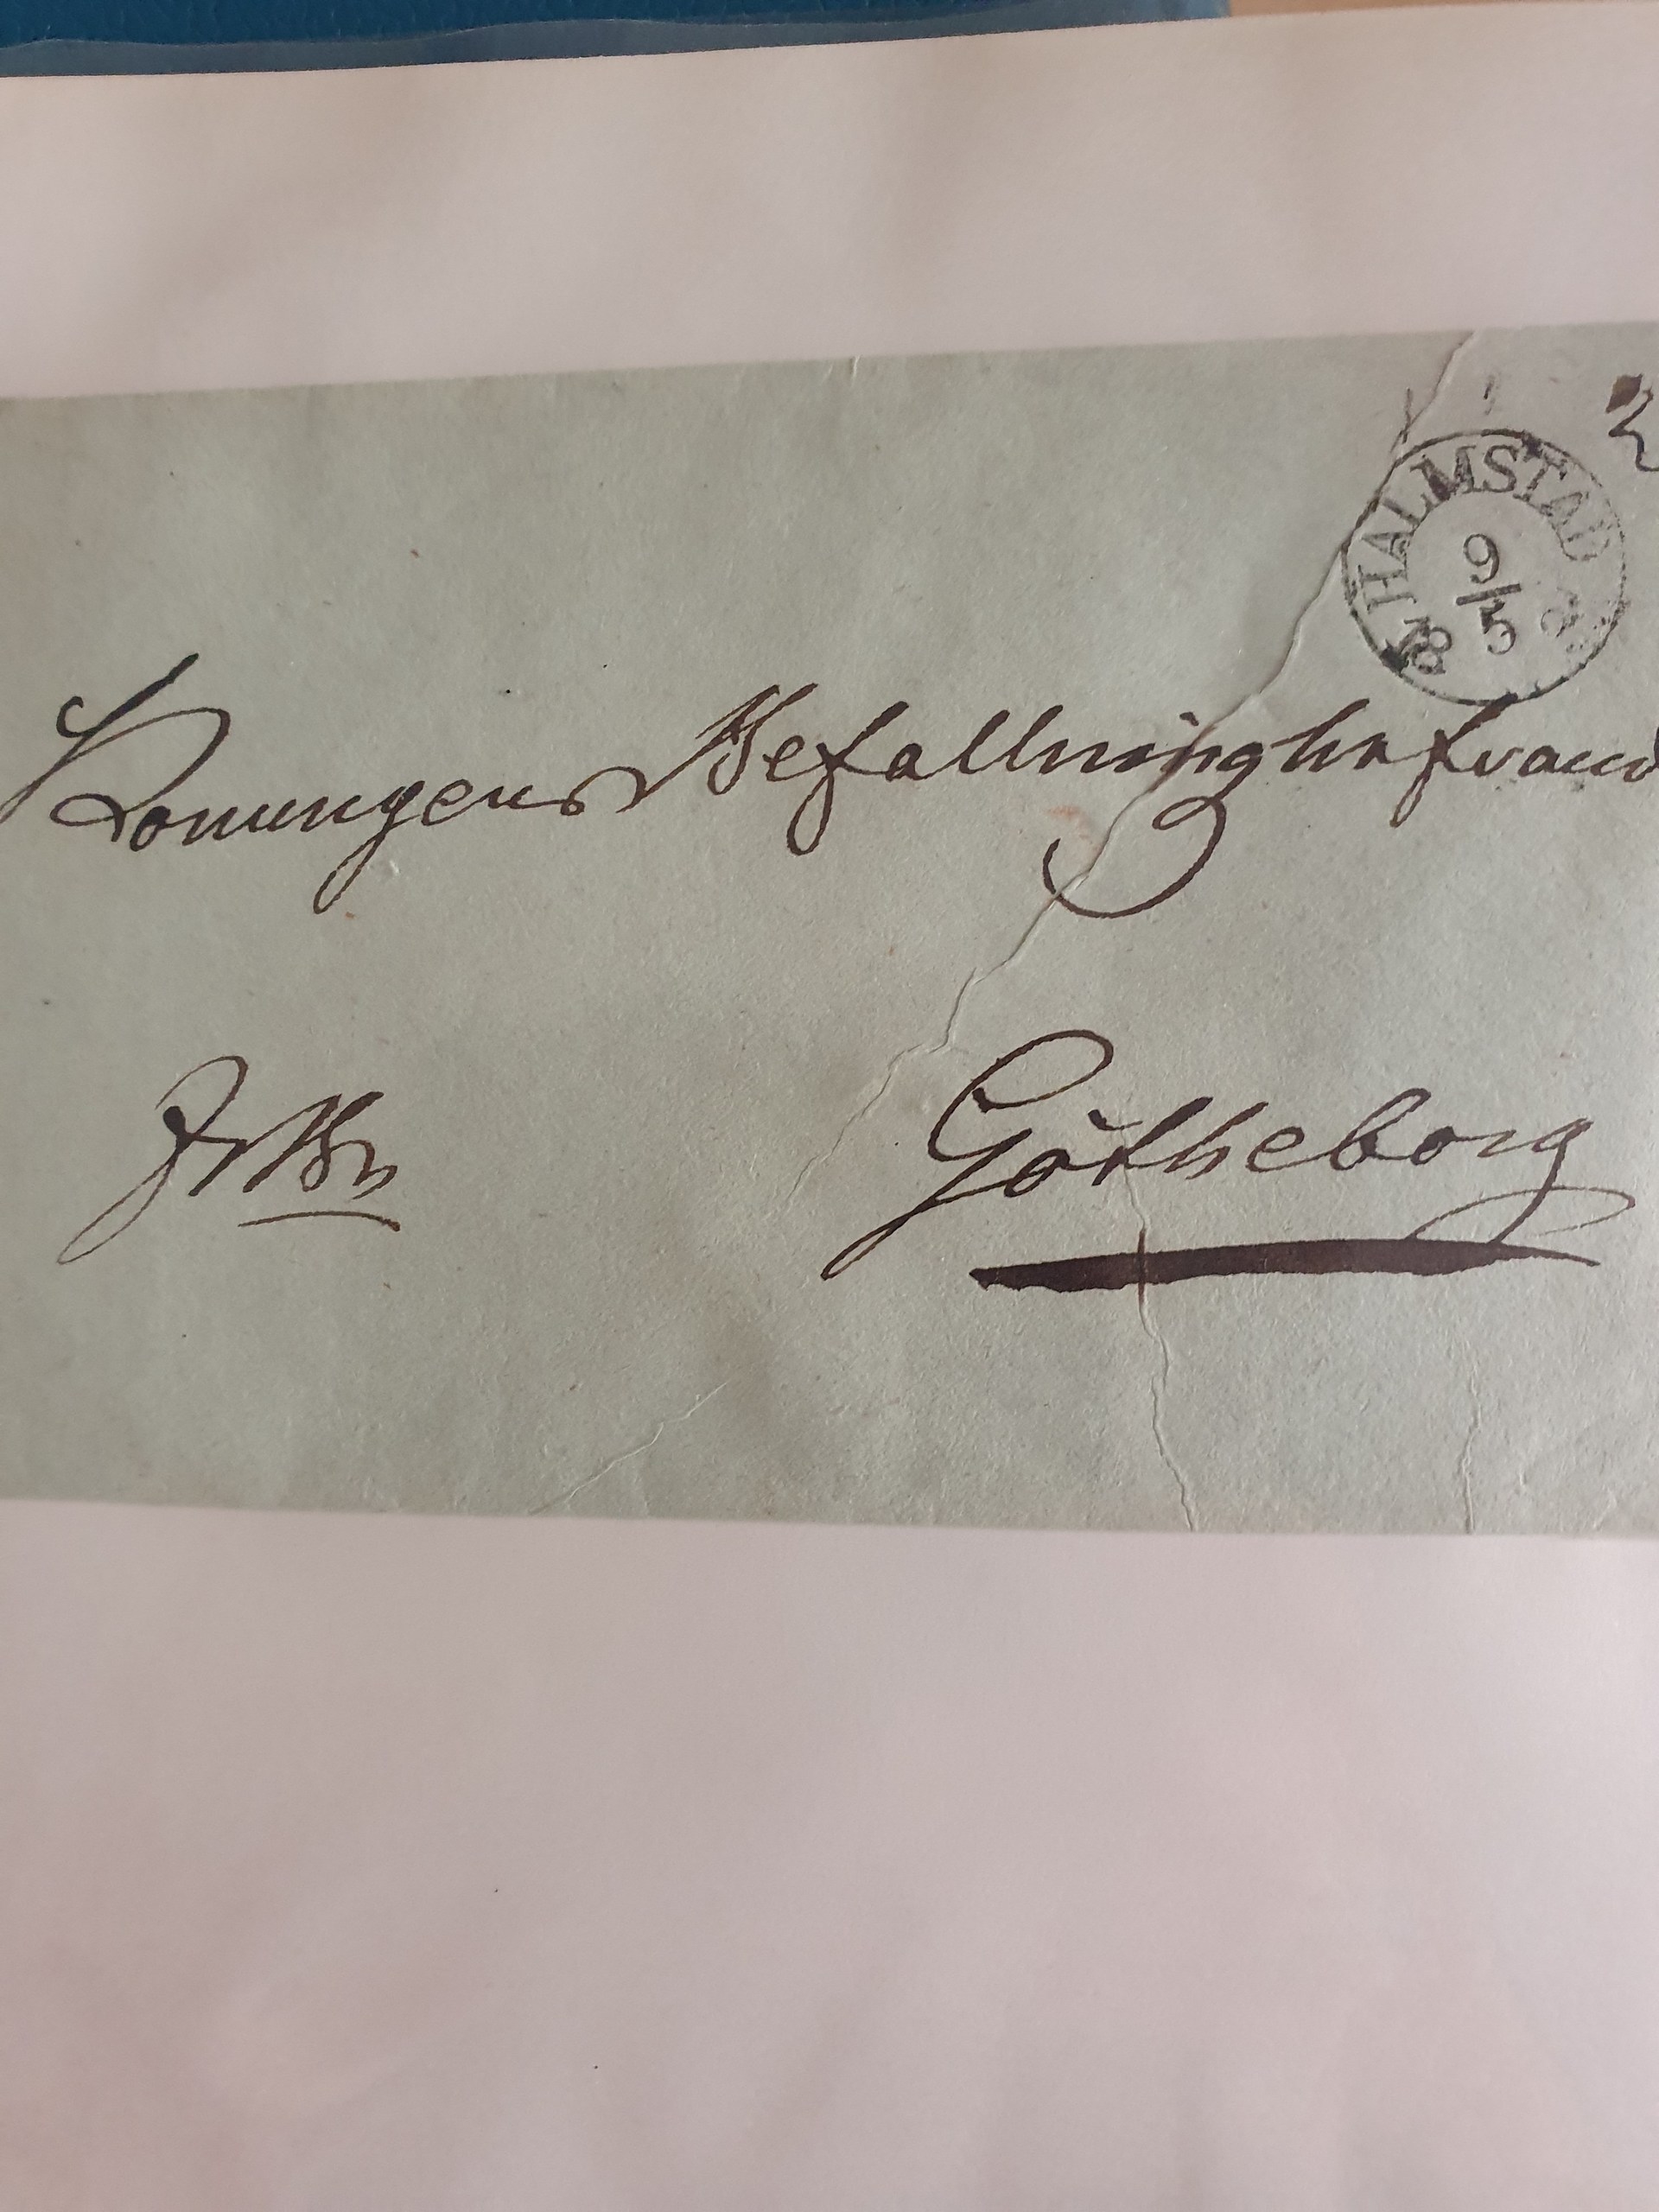 HALMSTAD
9
5
Konungens Befallningshafvand
Götheborg